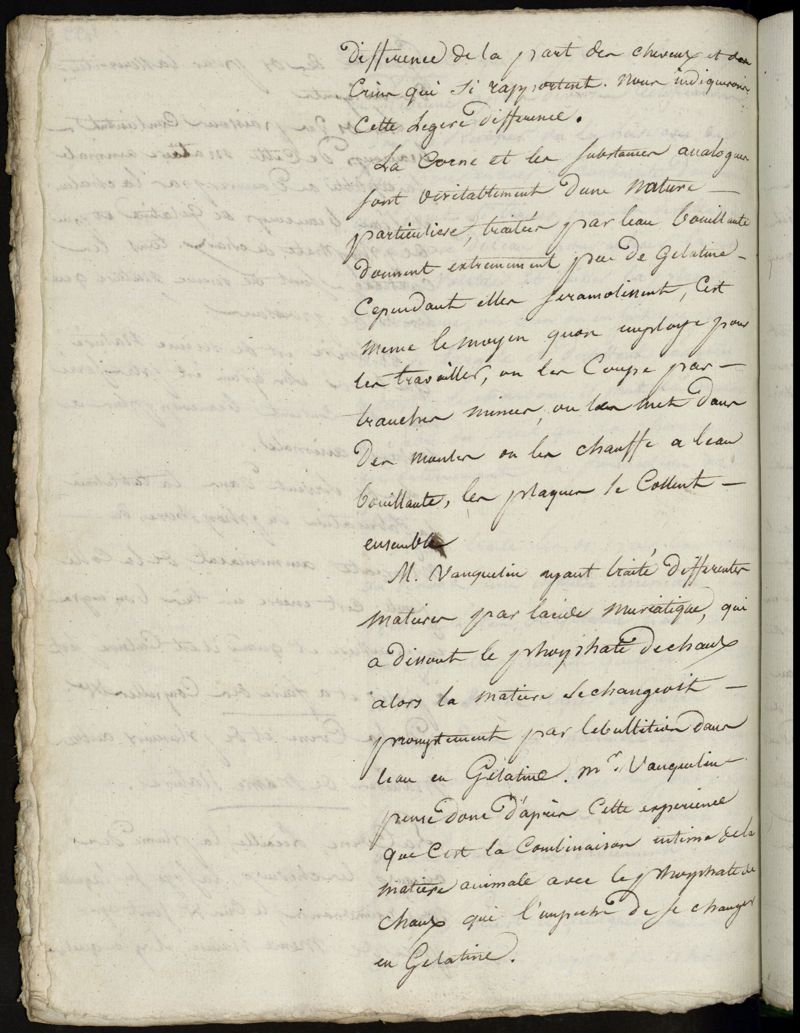 difference de la part des cheveux et des
Crins qui si rapportent. Nous indiquerons
Cette Legere difference.
La Corne et les substances analogues
sont veritablement d'une nature —
particuliere, traitées par leau bouillante
donnent extremement peu de Gelatine —
Cependant elles seramolissent, C'est
meme le moyen quon employe pour
les travailler, on les Coupe par —
tranches minces, on les met dans
Des moules on les chauffe a leau
bouillante, les plaques se Collent —
ensemble
M. Vauquelin ayant traité differentes
matieres par lacide muriatique, qui
a dissout le phosphate de chaux
alors la matiere se changeoit —
promptement par lebullition dans
leau en Gélatine. mr. Vauquelin —
pense donc d'après Cette experience
que C'est la Combinaison intime de la
matiere animale avec le phosphate de
chaux qui l'empeche de se changer
en Gelatine.